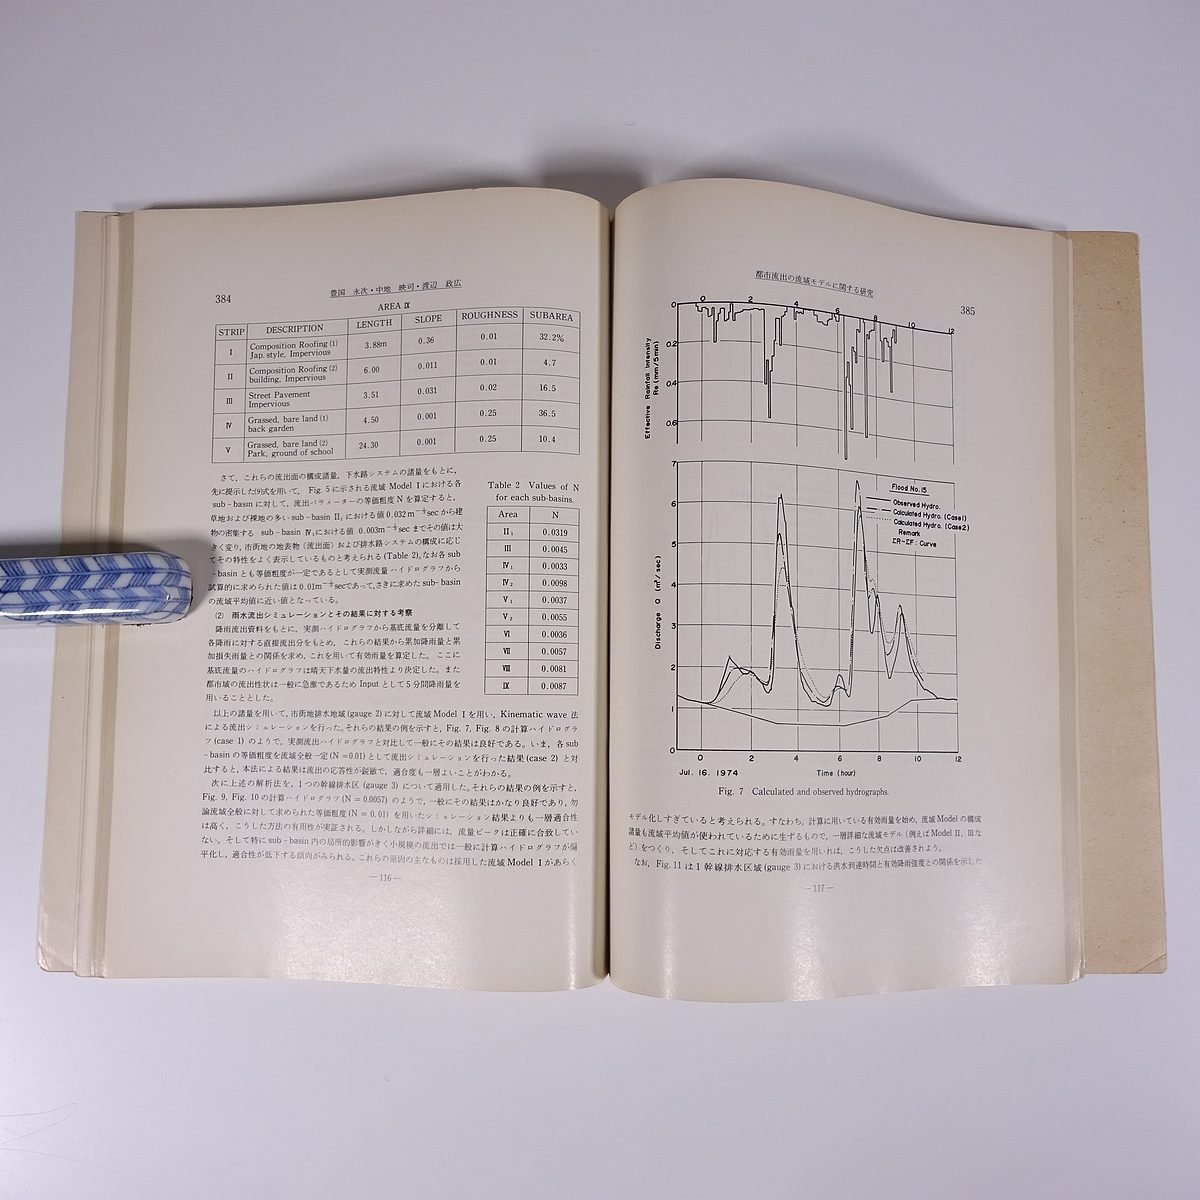 384
豊国 永次・中地 映司・渡辺 政広
AREA Ⅸ
STRIP DESCRIPTION LENGTH SLOPE ROUGHNESS SUBAREA
Ⅰ Composition Roofing (1) Jap. style, Impervious 3.88m 0.36 0.01 32.2%
Ⅱ Composition Roofing (2) building, Impervious 6.00 0.011 0.01 4.7
Ⅲ Street Pavement Impervious 3.51 0.031 0.02 16.5
Ⅳ Grassed, bare land (1) back garden 4.50 0.001 0.25 36.5
Ⅴ Grassed, bare land (2) Park, ground of school 24.30 0.001 0.25 10.4
さて、これらの流出面の構成諸量，下水路システムの諸量をもとに，
先に提示した(9)式を用いて， Fig. 5に示される流域 Model Ⅰにおける各
sub-basin に対して，流出パラメーターの等価粗度 N を算定すると，
草地および裸地の多い sub-basin Ⅱ₁における値 0.032 m^{-1/3}sec から建
物の密集する sub-basin Ⅳ₁における値 0.003m^{-1/3}sec までその値は大
きく変り，市街地の地表物（流出面）および排水路システムの構成に応じ
てその特性をよく表示しているものと考えられる (Table 2)。なお各 sub
-basin とも等価粗度が一定であるとして実測流量ハイドログラフから
試算的に求められた値は 0.01m^{-1/3}secであって，さきに求めた sub-basin
の流域平均値に近い値となっている。
(2) 雨水流出シミュレーションとその結果に対する考察
降雨流出資料をもとに，実測ハイドログラフから基底流量を分離して
各降雨に対する直接流出分をもとめ， これらの結果から累加降雨量と累
加損失雨量との関係を求め，これを用いて有効雨量を算定した。 ここに
基底流量のハイドログラフは晴天下水量の流出特性より決定した。また
都市域の流出性状は一般に急激であるため Input として5分間降雨量を
用いることとした。
Table 2 Values of N
for each sub-basins.
Area N
Ⅱ₁ 0.0319
Ⅲ 0.0045
Ⅳ₁ 0.0033
Ⅳ₂ 0.0098
Ⅴ₁ 0.0037
Ⅴ₂ 0.0055
Ⅵ 0.0036
Ⅶ 0.0057
Ⅷ 0.0081
Ⅸ 0.0087
以上の諸量を用いて，市街地排水地域 (gauge 2) に対して流域 Model Ⅰを用い，Kinematic wave 法
による流出シミュレーションを行った。それらの結果の例を示すと，Fig. 7, Fig. 8 の計算ハイドログラ
フ(case 1) のようで，実測流出ハイドログラフと対比して一般にその結果は良好である。いま，各 sub
-basin の等価粗度を流域全般一定 (N =0.01) として流出シミュレーションを行った結果 (case 2) と対
比すると，本法による結果は流出の応答性が鋭敏で，適合度も一層よいことがわかる。
次に上述の解析法を，1つの幹線排水区 (gauge 3) について適用した。それらの結果の例を示すと，
Fig. 9, Fig. 10 の計算ハイドログラフ (N = 0.0057) のようで，一般にその結果はかなり良好であり，勿
論流域全般に対して求められた等価粗度 (N = 0.01) を用いたシミュレーション結果よりも一層適合性
は高く，こうした方法の有用性が実証される。しかしながら詳細には，流量ピークは正確に合致してい
ない。そして特に sub-basin 内の局所的影響がきく小規模の流出では一般に計算ハイドログラフが偏
平化し，適合性が低下する傾向がみられる。これらの原因の主なものは採用した流域 Model Ⅰがあらく
—116—
都市流出の流域モデルに関する研究
385
0 2 4 6 8 10 12
0
0.2
0.4
0.6
Effective Rainfall Intensity
Re (mm/5min)
7
6
5
4
3
2
1
0
Discharge Q (m³/sec)
Flood No. 15
Observed Hydro.
Calculated Hydro. (Case 1)
Calculated Hydro. (Case 2)
Remark
ΣR-ΣF: Curve
0 2 4 6 8 10 12
Jul. 16. 1974
Time (hour)
Fig. 7 Calculated and observed hydrographs.
モデル化しすぎていると考えられる。すなわち，計算に用いている有効雨量を始め，流域 Model の構成
諸量も流域平均値が使われているために生ずるもので，一層詳細な流域モデル（例えば Model Ⅱ, Ⅲな
ど）をつくり，そしてこれに対応する有効雨量を用いれば，こうした欠点は改善されよう。
なお，Fig. 11 は1幹線排水区域 (gauge 3) における洪水到達時間と有効降雨強度との関係を示した
—117—